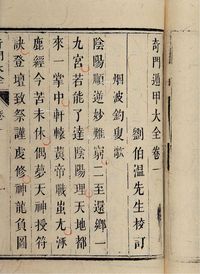 奇門遁甲大全卷一
劉伯溫先生校訂
烟波釣叟歌
陰陽順逆妙難窮二至還鄉一
九宮若能了達陰陽理天地都
來一掌中軒轅黃帝戰蚩尤涿
鹿經今苦未休偶夢天神授符
訣登壇致祭謹虔修神龍負圖